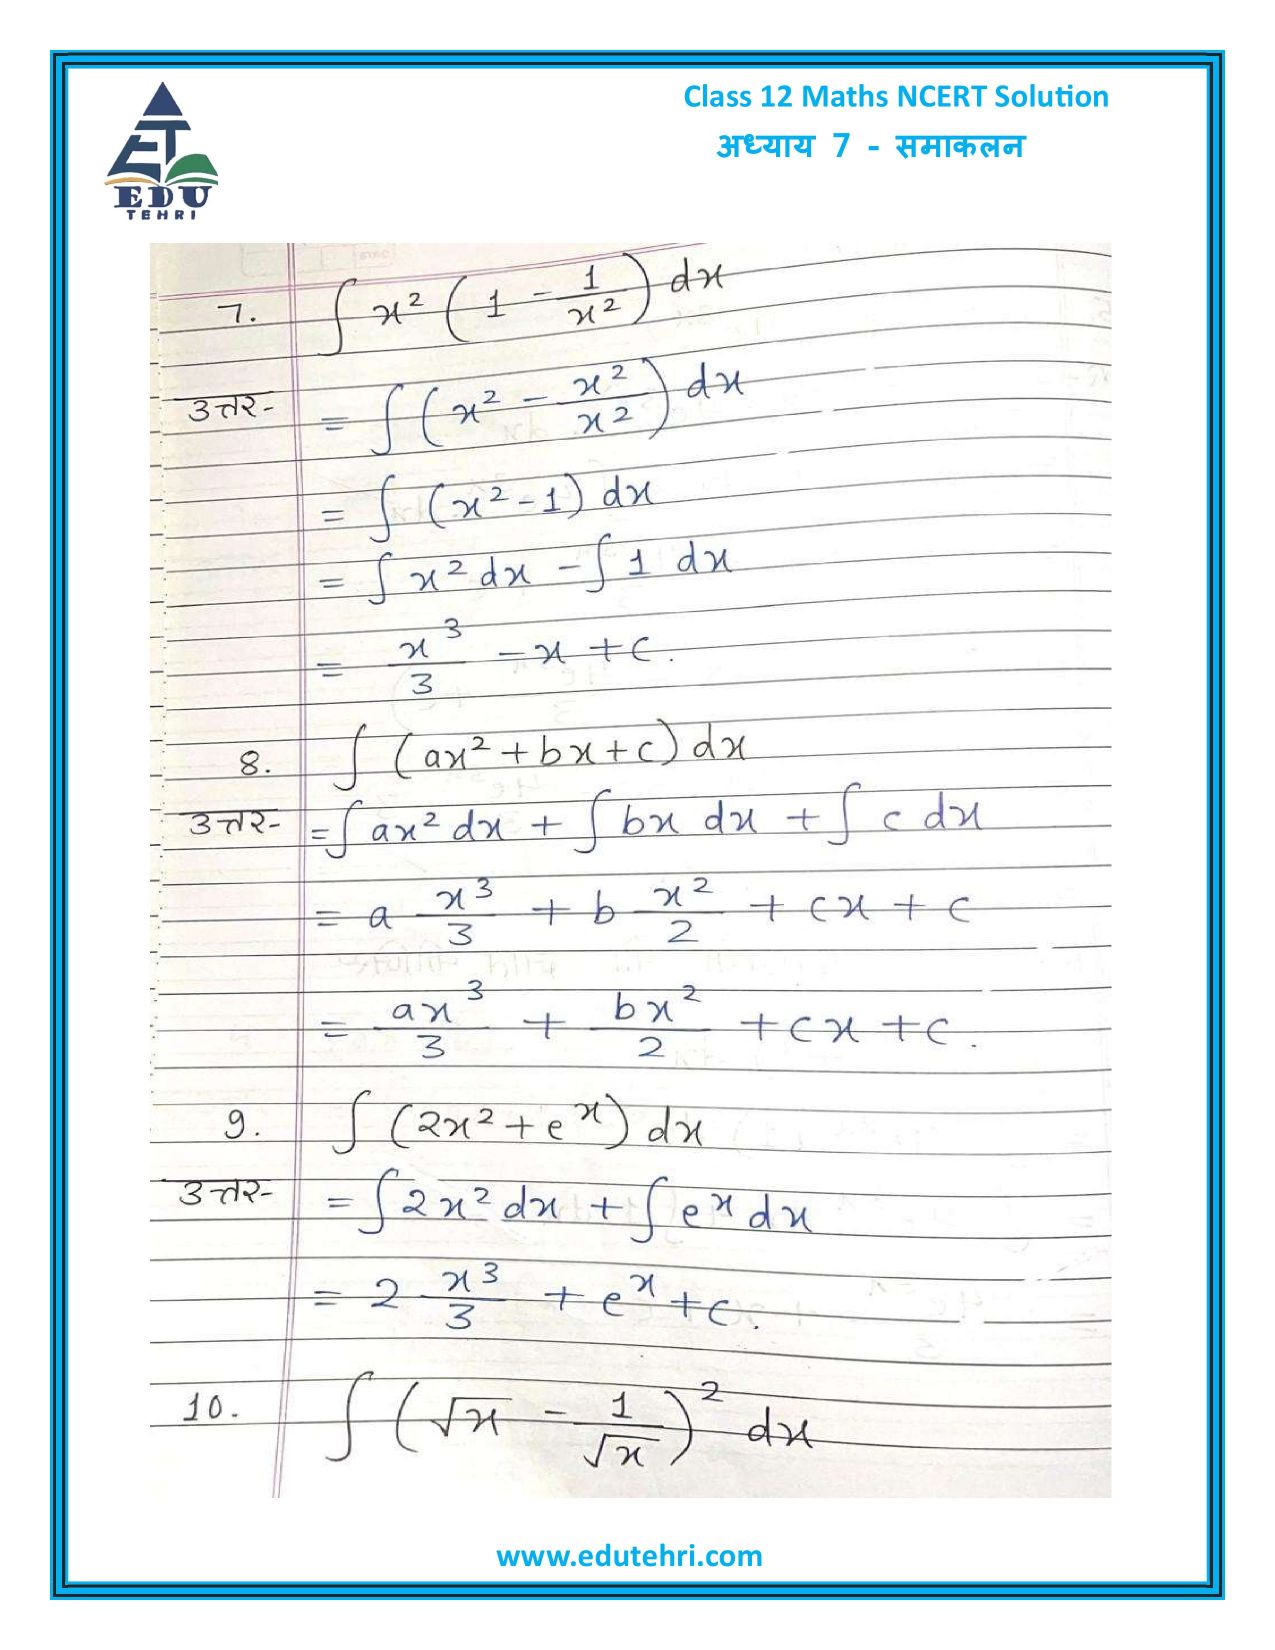 Class 12 Maths NCERT Solution
अध्याय 7 - समाकलन
EDU
TEHRI
7. ∫ x² (1 - 1/x²) dx
उत्तर- = ∫ (x² - x²/x²) dx
= ∫ (x² - 1) dx
= ∫ x² dx - ∫ 1 dx
= x³/3 - x + c.
8. ∫ (ax² + bx + c) dx
उत्तर- = ∫ ax² dx + ∫ bx dx + ∫ c dx
= a x³/3 + b x²/2 + cx + c
= ax³/3 + bx²/2 + cx + c.
9. ∫ (2x² + eˣ) dx
उत्तर- = ∫ 2x² dx + ∫ eˣ dx
= 2 x³/3 + eˣ + c.
10. ∫ (√x - 1/√x)² dx
www.edutehri.com